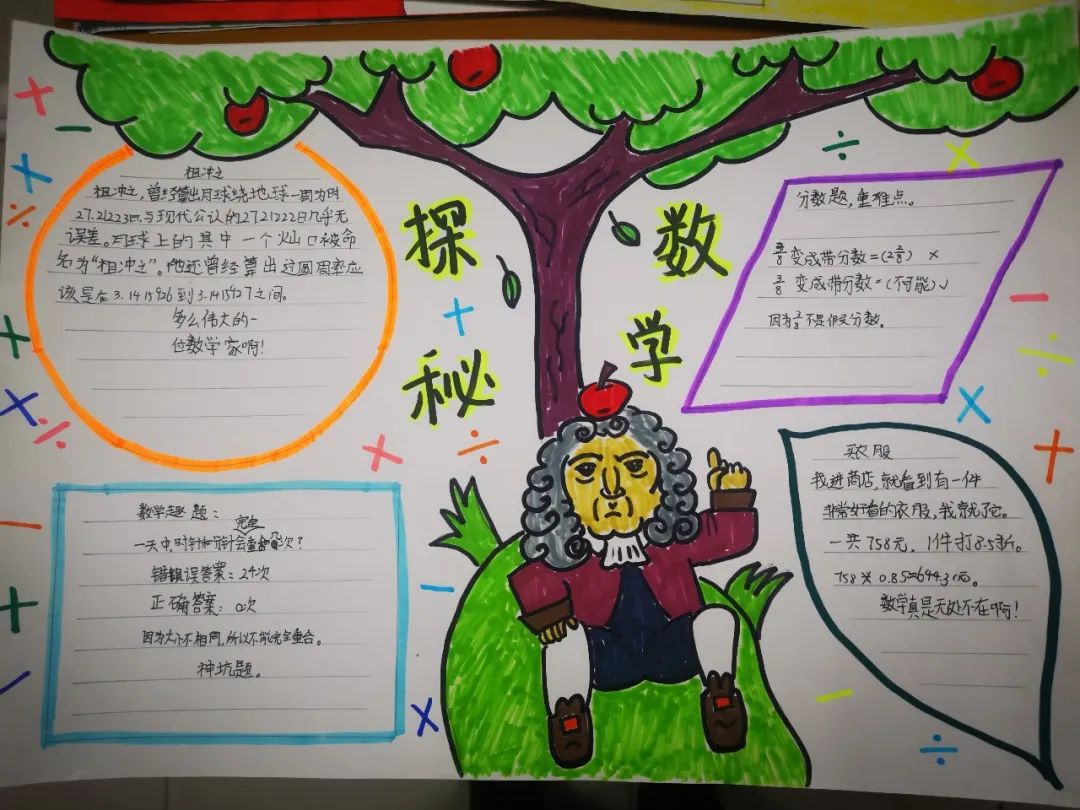 探数
秘学
祖冲之
祖冲之,曾经算出月球绕地球一周为时
27.21223日与现代公认的27.21222日几乎无
误差。月球上的其中一个火山口被命
名为“祖冲之”。他还曾经算出过圆周率应
该是在3.1415926到3.1415927之间。
多么伟大的一
位数学家啊!
分数题,重难点。
变成带分数=(2 ) ×
3/8 变成带分数=(不可能)√
因为 不是假分数。
数学趣题:
完全
一天中,时针和 针会重合几次?
错误答案:24次
正确答案:0次
因为大小不相同,所以不能完全重合。
神坑题。
买衣服
我进商店,就看到有一件
非常好看的衣服,我 了它。
一共758元,1件打8.5折。
758×0.85=644.3元。
数学真是无处不在啊!